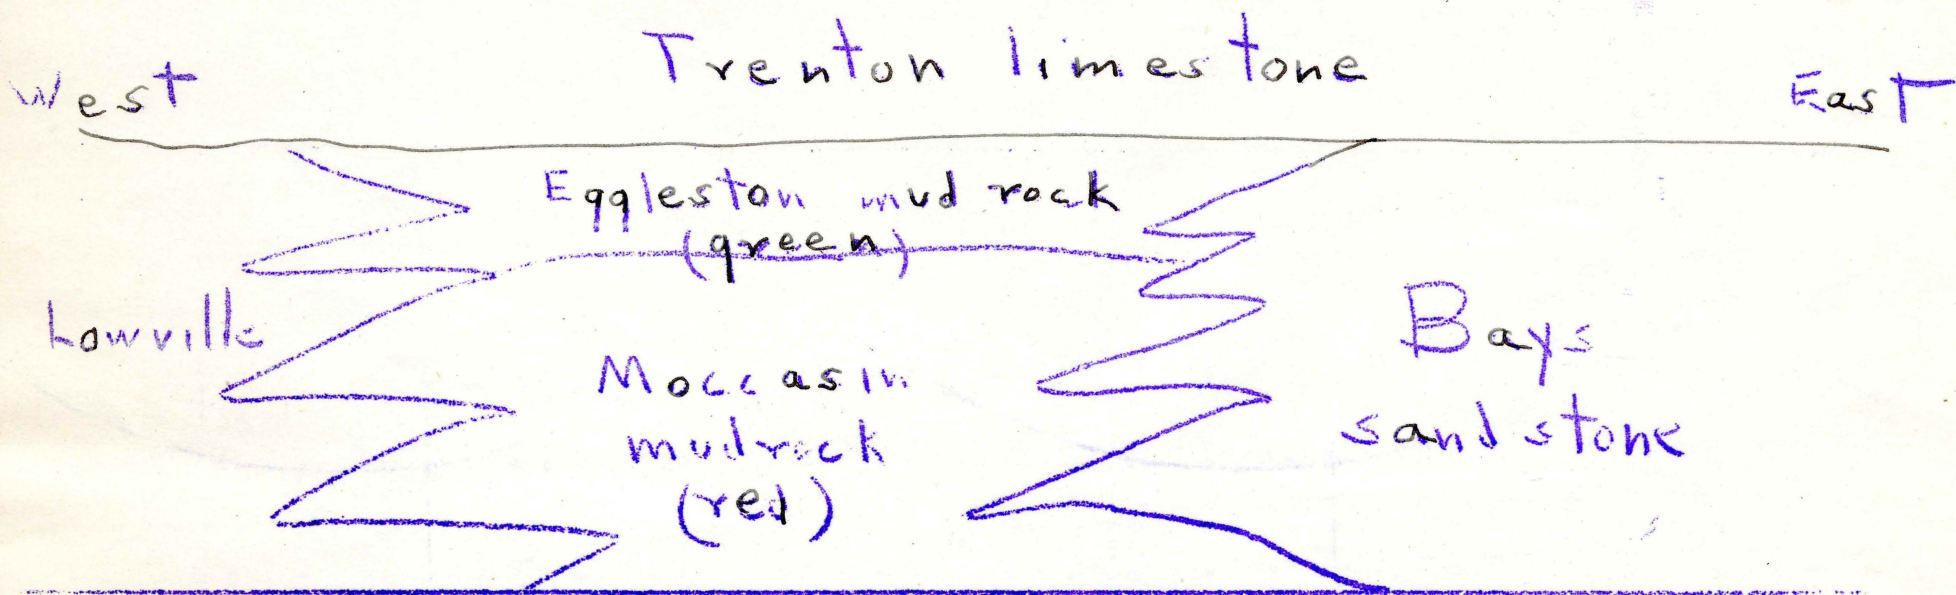 Trenton limestone
West
East
Eggleston mud rock
(green)
Lowville
Moccasin
mudrock
(red)
Bays
sandstone